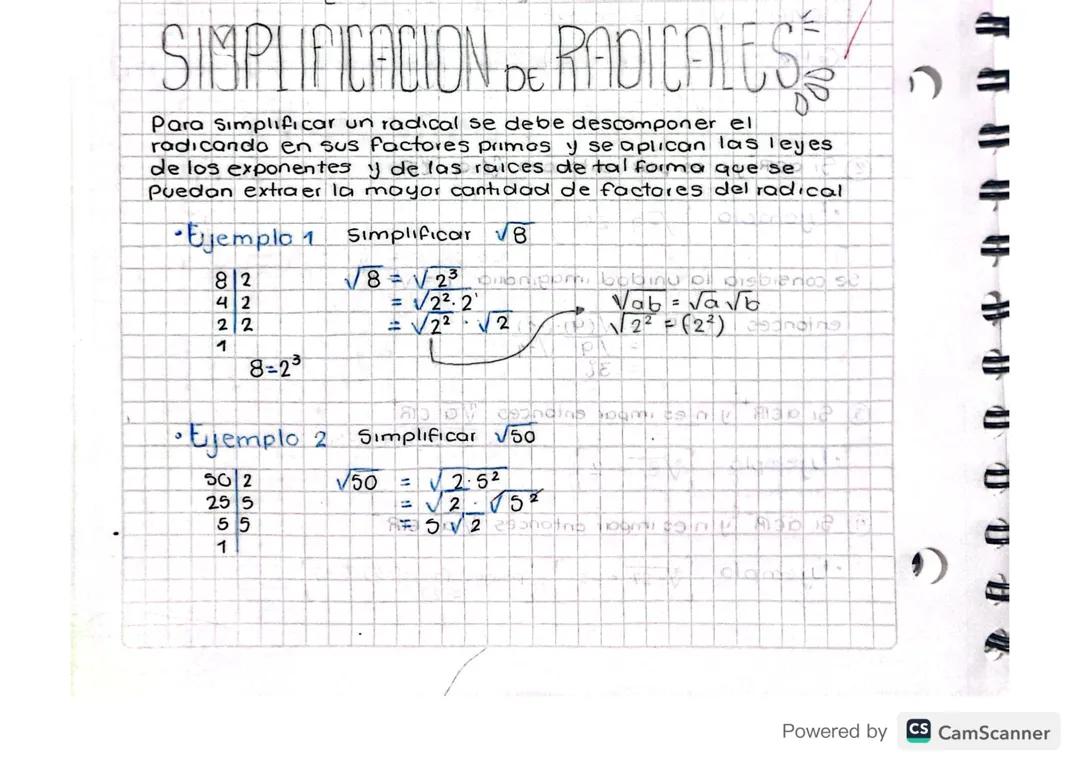 SIMPLIFICACION DE RADICALES
Para simplificar un radical se debe descomponer el
radicando en sus factores primos y se aplican las leyes
de los exponentes y de las raices de tal forma que se
puedan extraer la mayor cantidad de factores del radical
•Ejemplo 1 Simplificar √8
8|2 √8 = √2³
4|2 = √2²·2¹ √ab = √a √b
2|2 = √2² · √2 √2² = (2²)
1
8=2³
•Ejemplo 2 Simplificar √50
50|2 √50 = √2·5²
25|5 = √2 · √5²
5|5 = 5√2
1
Powered by CS CamScanner